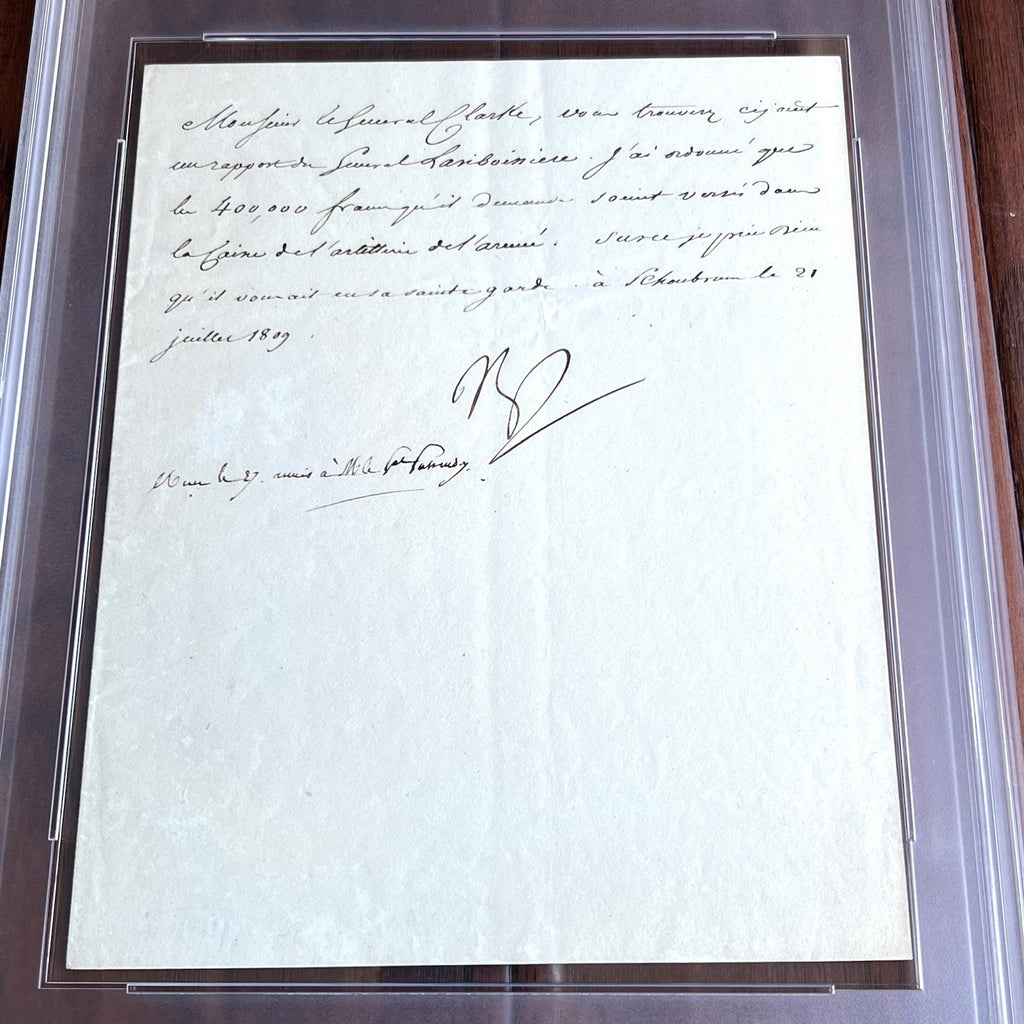 Monsieur le General Clarke, vous trouverez cijoint
un rapport du General Lariboissiere. J'ai ordonné que
les 400,000 francs qu'il demande soient versés dans
la Caisse de l'artillerie de l'armée. Sur ce je prie Dieu
qu'il vous ait en sa sainte garde. à Schonbrunn le 21
juillet 1809.
Np
le 27 remis à M. le Gal